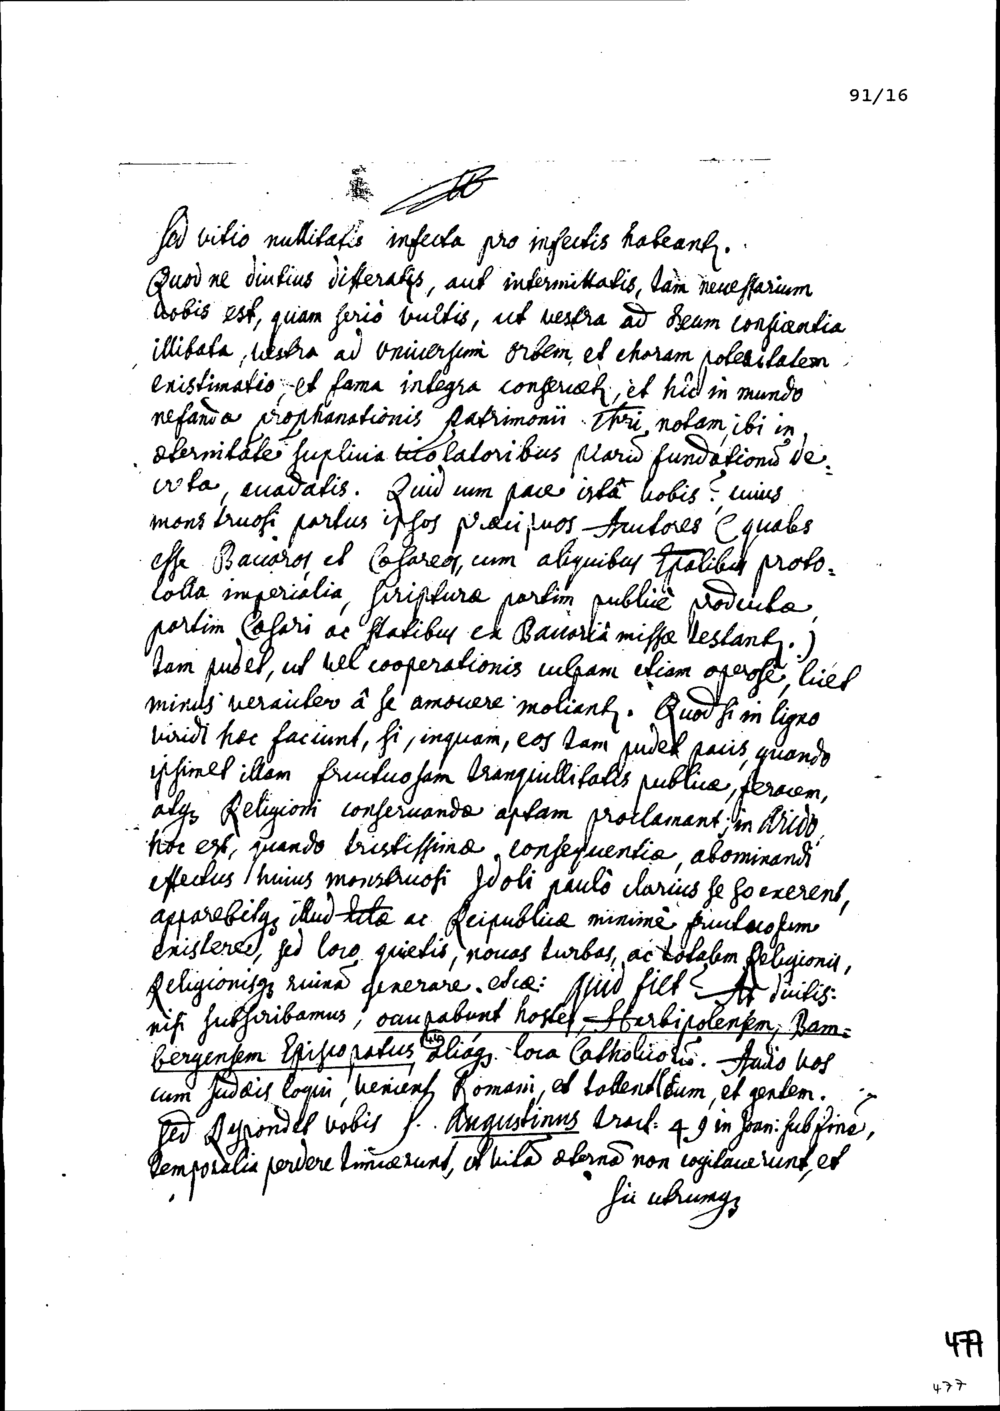 91/16
Sed vitio nullitatis infecta pro infectis habeantq.
Quod ne diutius differatis, aut intermittatis, tam necessarium
vobis est, quam seriò vultis, ut vestra ad Deum conscientia
illibata, vestra ad universum orbem, et charam posteritatem
existimatio, et fama integra conservetq, et hîc in mundo
nefandæ prophanationis Patrimonii Xpi notam, ibi in
æternitate suplicia violatoribus piarū fundationū de=
creta, evadatis. Quid cum pace istâ vobis? cuius
monstruosi partus ipsos præcipuos Autores (quales
esse Bavaros et Cæsareos, cum aliquibus proto=
colla imperialia, scripturæ partim publicè productæ,
partim Cæsari ac statibus ex Bavariâ missæ testantq.)
tam pudet, ut vel cooperationis culpam etiam operosè, licet
minus veraciter â se amovere moliantq. Quod si in ligno
viridi hæc faciunt, si, inquam, eos tam pudet pacis, quando
ipsimet illam fructuosam tranquillitatis publicæ, feracem,
atq Religioni conservandæ aptam proclamant; in Arido,
hoc est, quando tristissimæ consequentiæ, abominandi
effectus huius monstruosi Idoli paulò clarius se exerent,
apparebitq illud ac Reipublicæ minimè fructuosum
existere, sed loco quietis, novas turbas, ac totalem Religionis,
Religionisq ruinā generare. etcæ: Quid fiet? At dicitis:
nisi subscribamus, occupabunt hostes, Herbipolensem, Bam=
bergensem Episcopatus, aliaq loca Catholicorū. Audio vos
cum Judæis loqui, venient Romani, et tollent locum, et gentem.
Sed Respondet vobis S. Augustinus tract: 49 in Joan: sub finē,
temporalia perdere timuerunt, et vitā æternā non cogitaverunt, et
sic utrumq
477
477